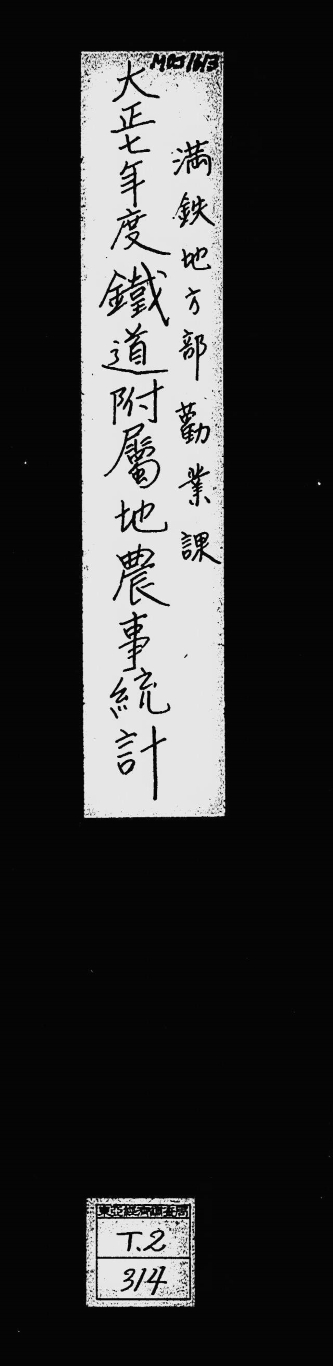 MOJ 1613
満鉄地方部勸業課
大正七年度鐵道附屬地農事統計
東亞經濟調査局
T.2
314